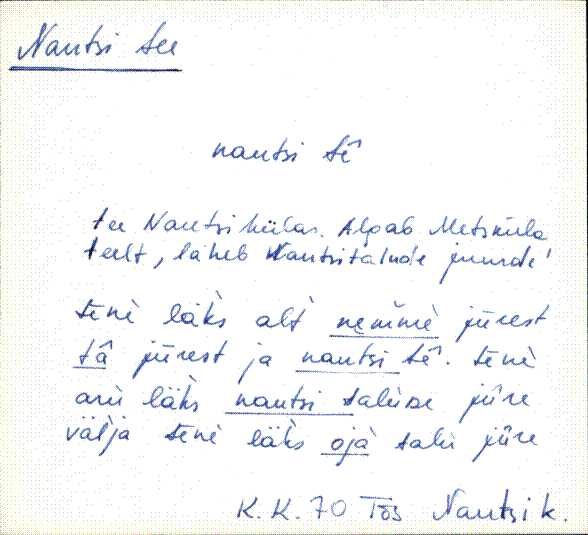 Nautsi tee
nautsi tê
tee Nautsi külas. Algab Metsküla
teelt, läheb Nautsitalude juurde
tenè läks alt nemmè jûrest
tâ jûrest ja nautsi tê. tenè
arù läks nautsi talude jûre
välja tenè läks ojà talù jûre
K.K. 70 Tõs Nautsi k.